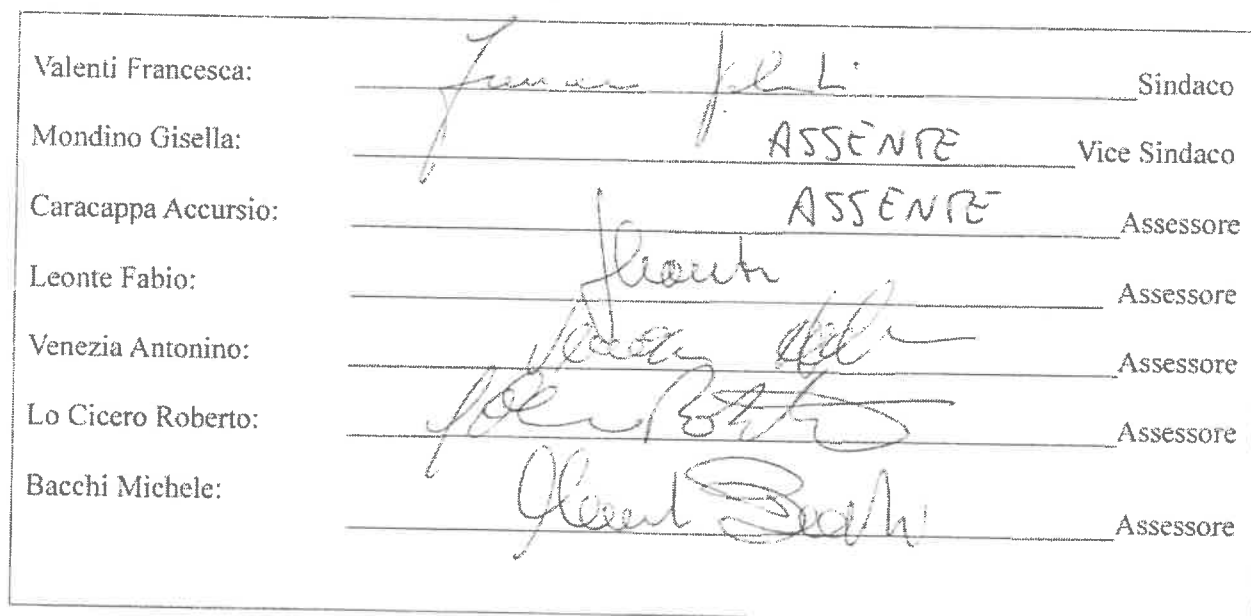 Valenti Francesca: Sindaco
Mondino Gisella: ASSENTE Vice Sindaco
Caracappa Accursio: ASSENTE Assessore
Leonte Fabio: Assessore
Venezia Antonino: Assessore
Lo Cicero Roberto: Assessore
Bacchi Michele: Assessore